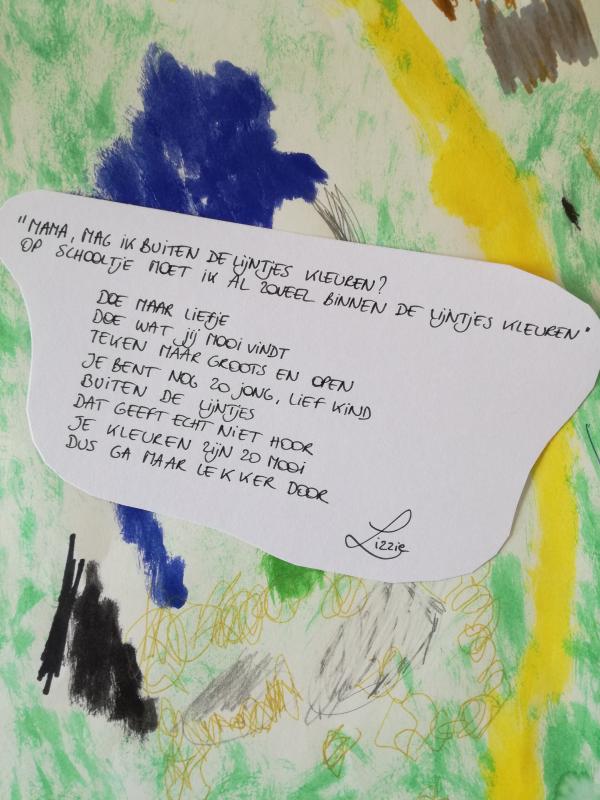 "MAMA, MAG IK BUITEN DE LIJNTJES KLEUREN?
OP SCHOOLTJE MOET IK AL ZOVEEL BINNEN DE LIJNTJES KLEUREN"
DOE MAAR LIEFJE
DOE WAT JIJ MOOI VINDT
TEKEN MAAR GROOTS EN OPEN
JE BENT NOG ZO JONG, LIEF KIND
BUITEN DE LIJNTJES
DAT GEEFT ECHT NIET HOOR
JE KLEUREN ZIJN ZO MOOI
DUS GA MAAR LEKKER DOOR
Lizzie